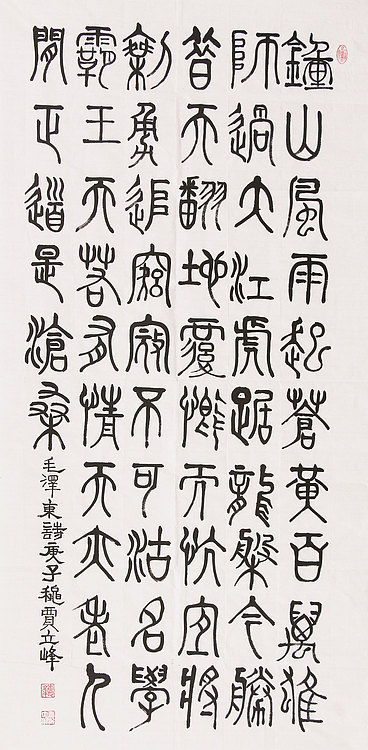 鐘山風雨起蒼黃百萬雄
師過大江虎踞龍槃今勝
昔天翻地覆慨而忼宜將
剩勇追窮寇不可沽名學
霸王天若有情天亦老人
閒正道是滄桑
毛澤東詩庚子穐賈立峰